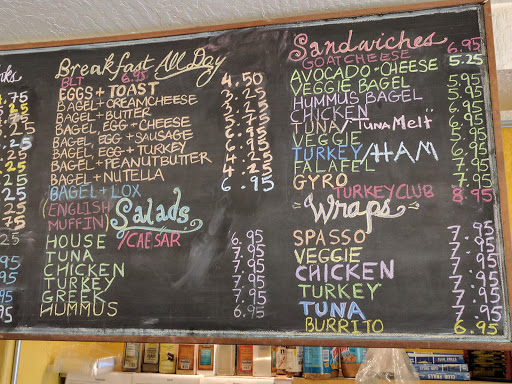 nks
Breakfast All Day
BLT 6.95
EGGS + TOAST 4.50
BAGEL + CREAMCHEESE
BAGEL + BUTTER
BAGEL, EGG + CHEESE
BAGEL, EGG + SAUSAGE
BAGEL, EGG + TURKEY
BAGEL + PEANUTBUTTER
BAGEL + NUTELLA 4.25
BAGEL + LOX 6.95
(ENGLISH
MUFFIN)
Salads
HOUSE /CAESAR 6.95
TUNA 7.95
CHICKEN 7.95
TURKEY 7.95
GREEK 7.95
HUMMUS 6.95
Sandwiches
GOATCHEESE 6.95
AVOCADO - CHEESE 5.25
VEGGIE BAGEL 5.95
HUMMUS BAGEL 5.95
CHICKEN
TUNA/TUNA Melt
VEGGIE
TURKEY/HAM
FALAFEL 7.95
GYRO 7.95
TURKEY CLUB 8.95
Wraps
SPASSO 7.95
VEGGIE 7.95
CHICKEN 7.95
TURKEY 7.95
TUNA 7.95
BURRITO 6.95